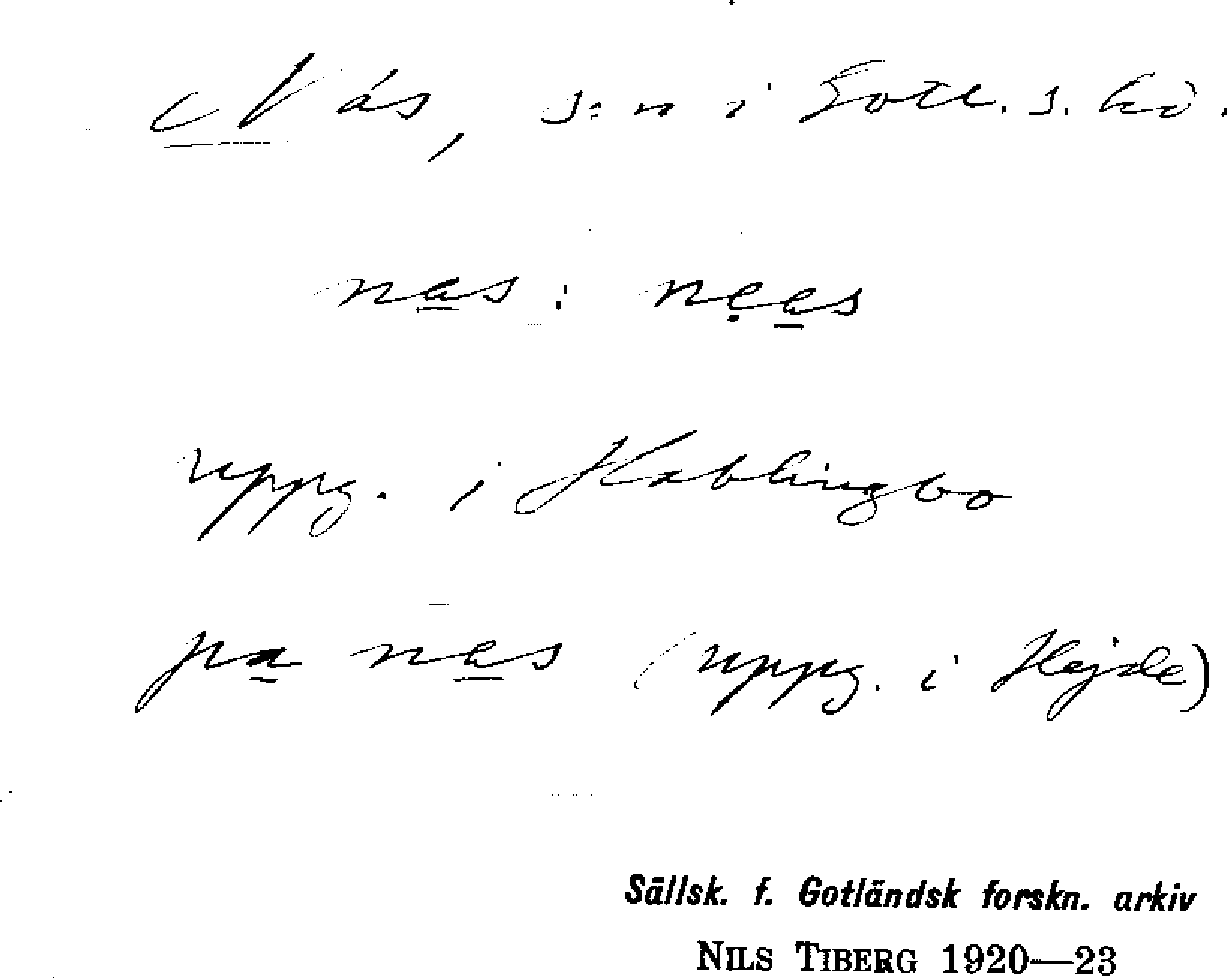 Näs, s:n i Gotl. s. hd.
nas : nees
uppg. i Hablingbo
pa nas (uppg. i Hejde)
Sällsk. f. Gotländsk forskn. arkiv
NILS TIBERG 1920—23